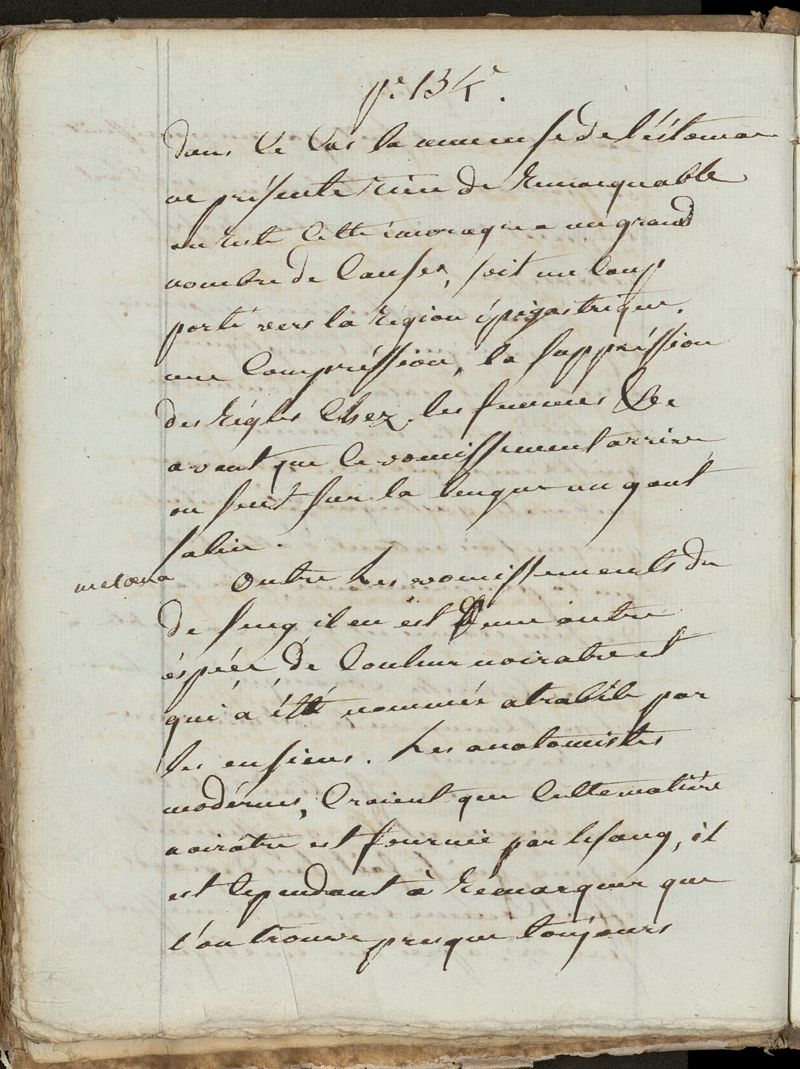 pe. 134e.
dans ce Cas la muceuse de l'éstomac
ne présente rien de remarquable
au reste cette émoragie a un grand
nombre de Causes, soit un Coup
porté vers la région épigastrique,
une Compréssion, la suppréssion
des régles Chez les femmes &c
avant que le vomissement arrive
on sent sur la langue un gout
salin.
melœna
Outre les vomissements du
de sang il en est d'une autre
éspéce de Couleur noiratre et
qui a été nommée atrabile par
les ensiens. Les anatomistes
modérnes, Croient que cette matière
noirâtre est fournie par le sang, il
est Cependant à remarquer que
l'on trouve presque toujours